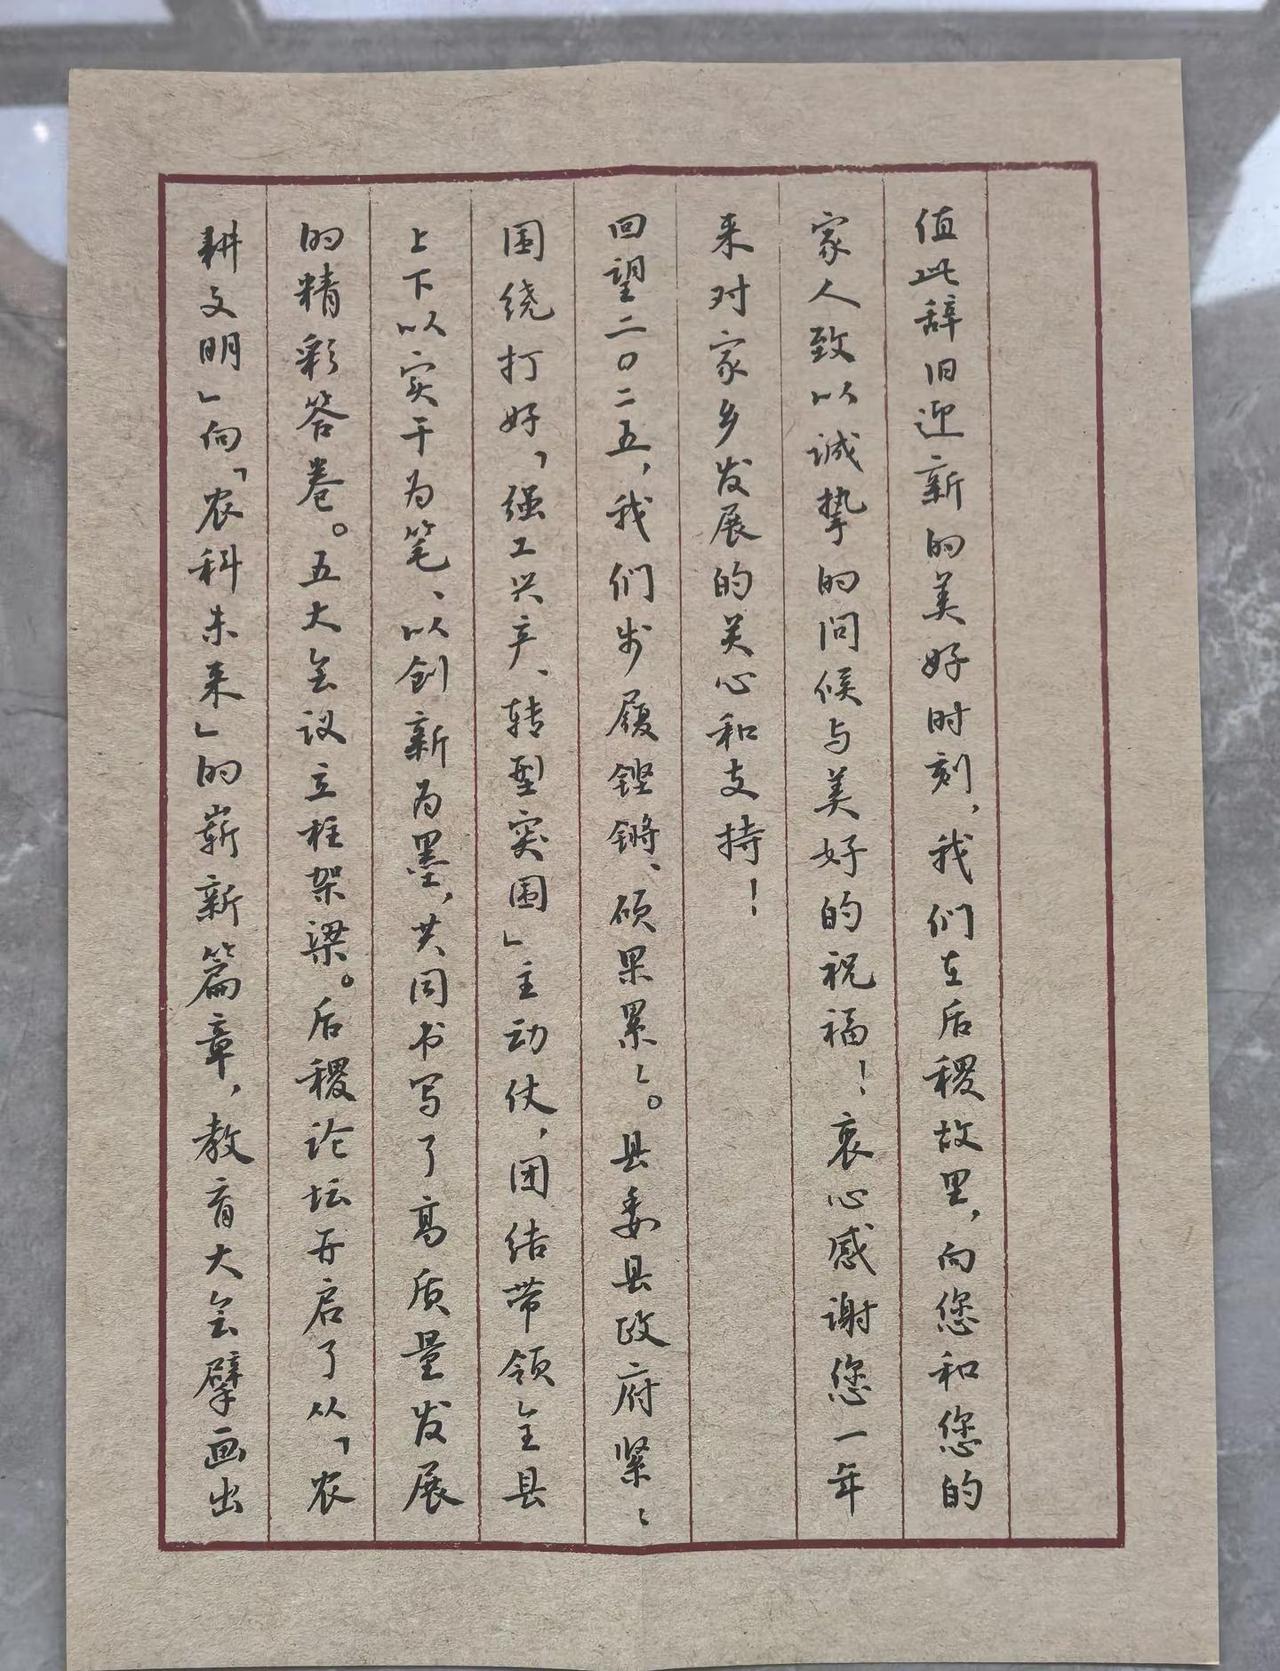 值此辞旧迎新的美好时刻，我们在后稷故里，向您和您的
家人致以诚挚的问候与美好的祝福！衷心感谢您一年
来对家乡发展的关心和支持！
回望二〇二五，我们步履铿锵、硕果累〻。县委县政府紧〻
围绕打好「强工兴产、转型突围」主动仗，团结带领全县
上下以实干为笔、以创新为墨，共同书写了高质量发展
的精彩答卷。五大会议立柱架梁。后稷论坛开启了从「农
耕文明」向「农科未来」的崭新篇章，教育大会擘画出